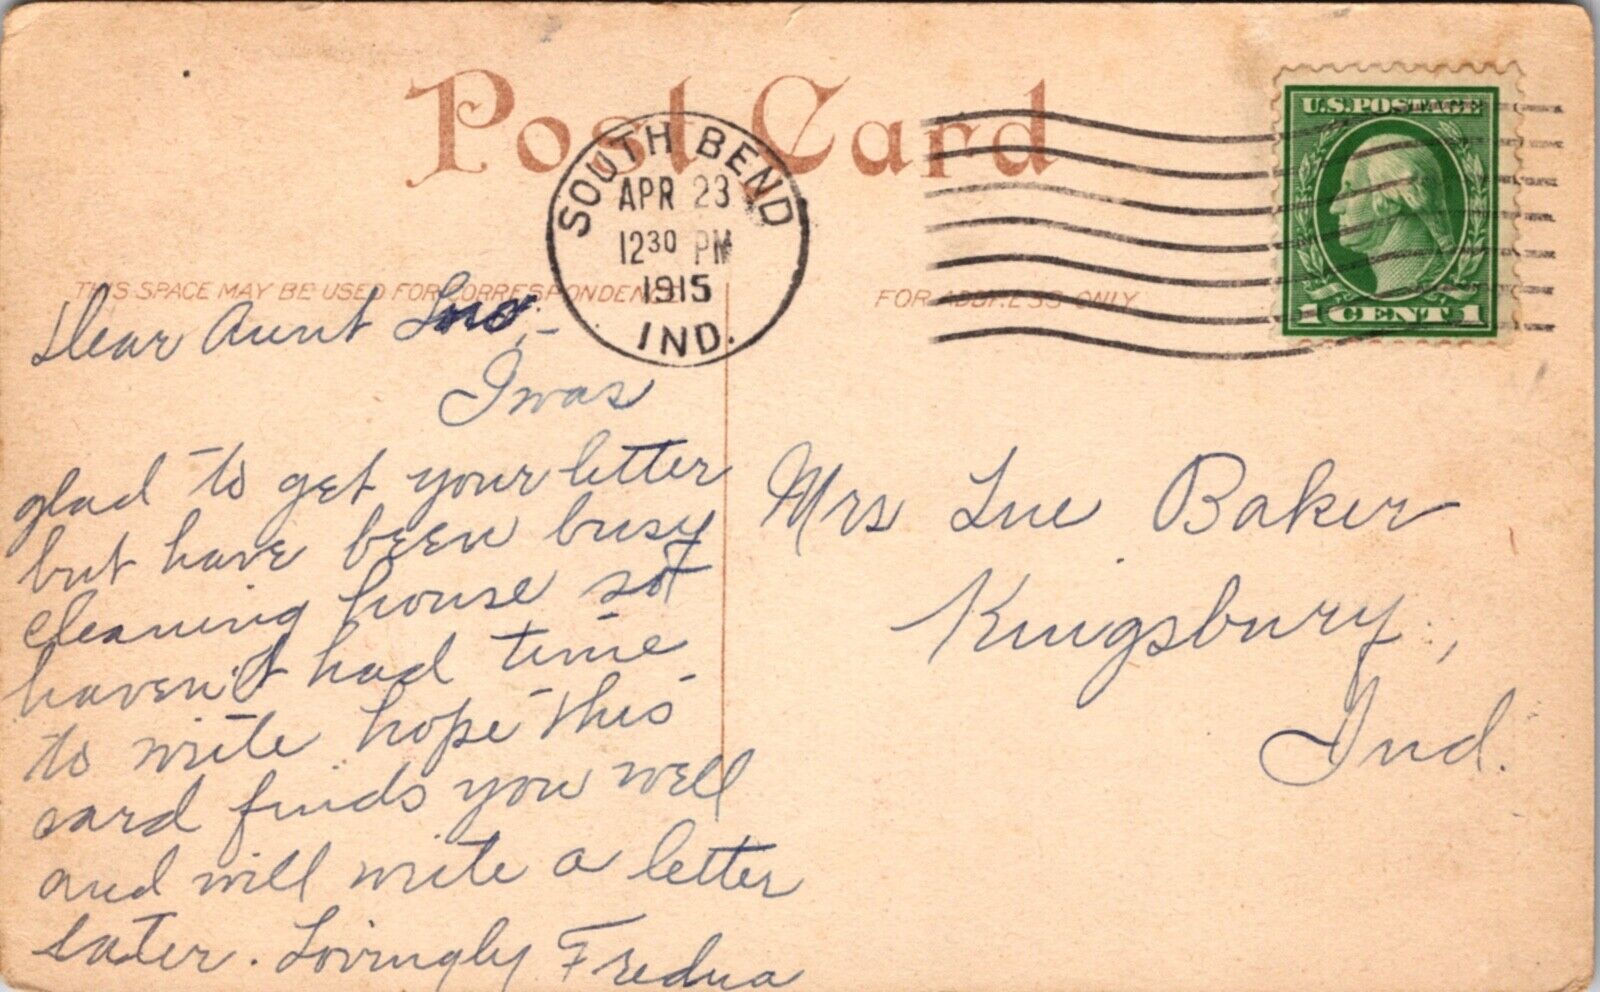 Post Card
SOUTH BEND
APR 23
12 30 PM
1915
IND.
U.S. POSTAGE
1 CENT 1
THIS SPACE MAY BE USED FOR CORRESPONDENCE
FOR ADDRESS ONLY
Dear Aunt
I was
glad to get your letter
but have been busy
cleaning house so
haven't had time
to write hope this
card finds you well
and will write a letter
later. Lovingly Fredua
Mrs Lue Baker
Kingsbury,
Ind.